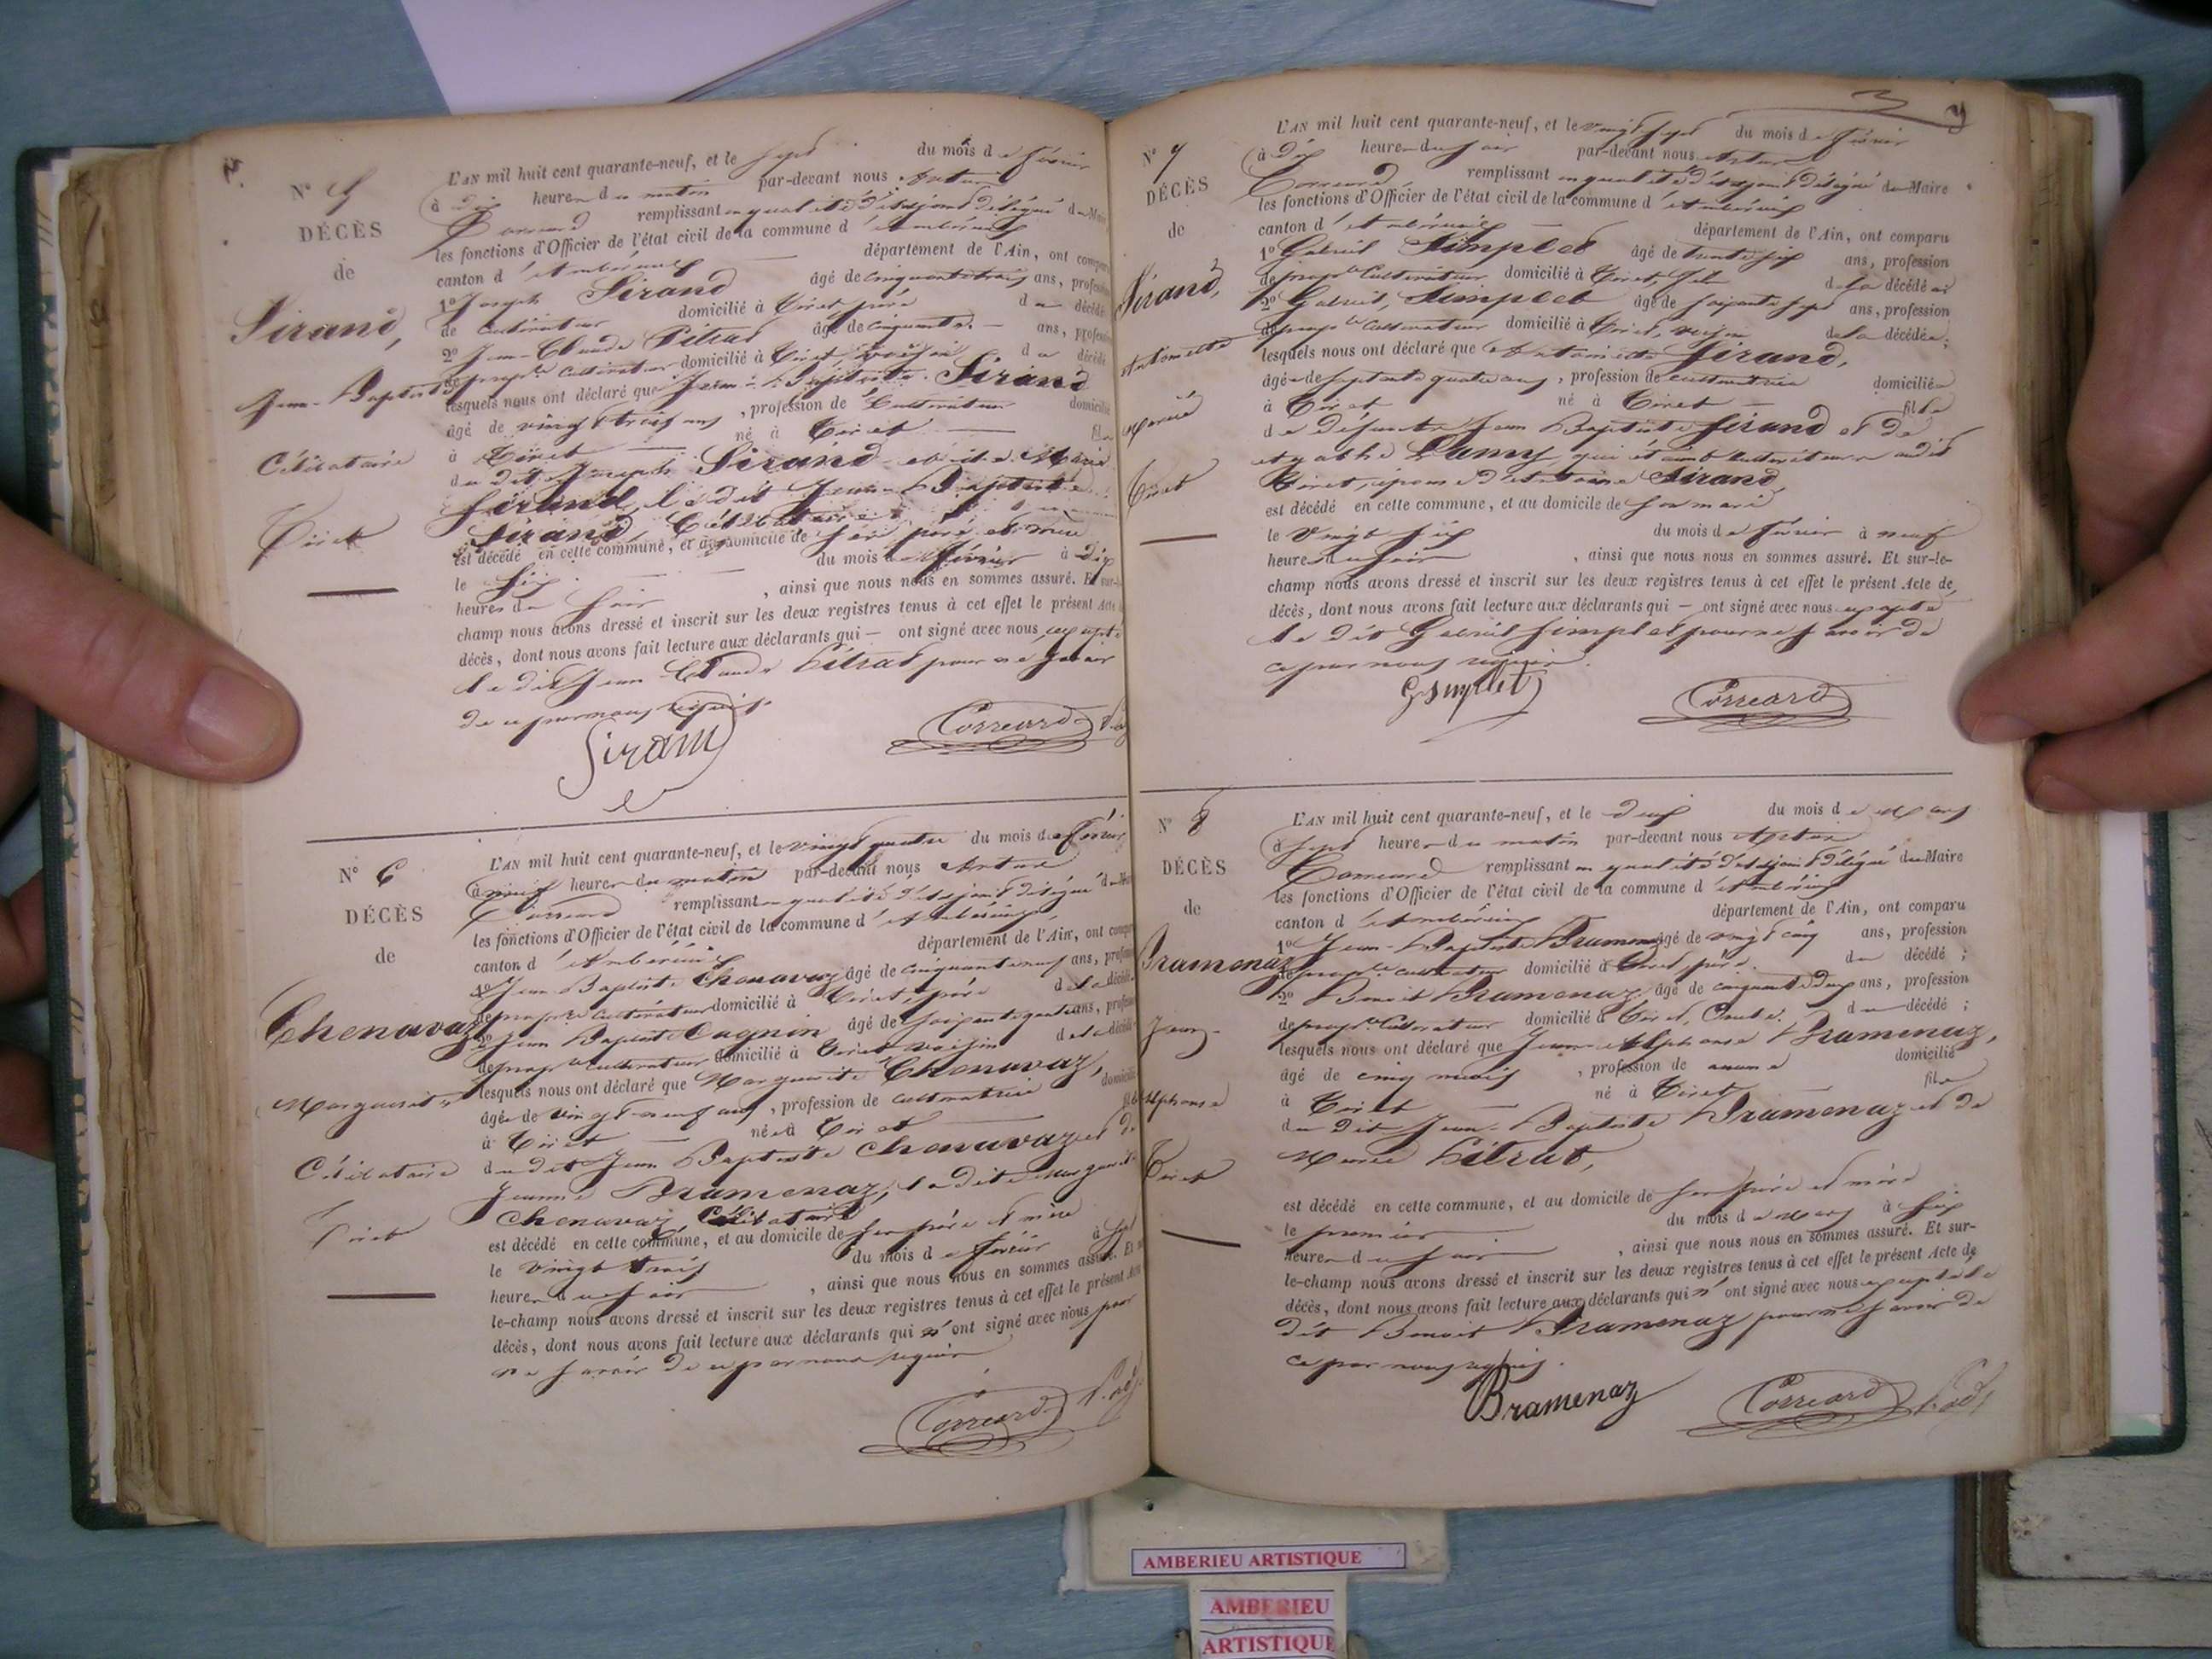 N° 5
DÉCÈS
de
Sirand,
Jean-Baptiste
Célibataire
Tiret
L'AN mil huit cent quarante-neuf, et le sept du mois de février
à dix heures du matin par-devant nous Artur
Correard remplissant en qualité d'adjoint délégué du Maire
les fonctions d'Officier de l'état civil de la commune d'Ambérieux
canton d'Ambérieux département de l'Ain, ont comparu
1° Joseph Sirand âgé de cinquante trois ans, profession
de cultivateur domicilié à Tiret, père du décédé
2° Jean-Claude Pétrat âgé de cinquante ans, profession
de propre cultivateur domicilié à Tiret, voisin du décédé
lesquels nous ont déclaré que Jean-Baptiste Sirand
âgé de vingt trois ans, profession de Cultivateur domicilié
à Tiret né à Tiret fils
du dit Joseph Sirand et de Marie
Sirand, le dit Jean-Baptiste
Sirand, Célibataire
est décédé en cette commune, et au domicile de ses père et mère
le six du mois de février à dix
heures du soir, ainsi que nous nous en sommes assuré. Et sur-le-
champ nous avons dressé et inscrit sur les deux registres tenus à cet effet le présent Acte de
décès, dont nous avons fait lecture aux déclarants qui — ont signé avec nous excepté
le dit Jean Claude Pétrat pour ne savoir
de ce par nous requis.
Sirand
Correard
N° 6
DÉCÈS
de
Chenavaz
Marguerite
Célibataire
Tiret
L'AN mil huit cent quarante-neuf, et le vingt quatre du mois de février
à neuf heures du matin par-devant nous Artur
Correard remplissant en qualité d'adjoint délégué du Maire
les fonctions d'Officier de l'état civil de la commune d'Ambérieux,
canton d'Ambérieux département de l'Ain, ont comparu
1° Jean Baptiste Chenavaz âgé de cinquante neuf ans, profession
de propre cultivateur domicilié à Tiret, père de la décédée
2° Jean Baptiste Cagnin âgé de soixante quatre ans, profession
de propre cultivateur domicilié à Tiret voisin de la décédée
lesquels nous ont déclaré que Marguerite Chenavaz,
âgée de vingt-neuf ans, profession de cultivatrice domiciliée
à Tiret née à Tiret fille
du dit Jean Baptiste Chenavaz et de
Jeanne Bramenaz, la dite Marguerite
Chenavaz Célibataire
est décédé en cette commune, et au domicile de ses père et mère
le vingt trois du mois de février à
heures du soir, ainsi que nous nous en sommes assuré. Et sur-
le-champ nous avons dressé et inscrit sur les deux registres tenus à cet effet le présent Acte de
décès, dont nous avons fait lecture aux déclarants qui n'ont signé avec nous pour
ne savoir de ce par nous requis
Correard
N° 7
DÉCÈS
de
Sirand,
Antoinette
mariée
Tiret
L'AN mil huit cent quarante-neuf, et le vingt sept du mois de février
à dix heures du soir par-devant nous Artur
Correard remplissant en qualité d'adjoint délégué du Maire
les fonctions d'Officier de l'état civil de la commune d'Ambérieux
canton d'Ambérieux département de l'Ain, ont comparu
1° Gabriel Simplet âgé de trente six ans, profession
de propre Cultivateur domicilié à Tiret, de la décédée
2° Gabriel, Simplet âgé de soixante sept ans, profession
de propre Cultivateur domicilié à Tiret, voisin de la décédée;
lesquels nous ont déclaré que Antoinette Sirand,
âgée de soixante quatre ans, profession de cultivatrice domiciliée
à Tiret né à Tiret fille
de défunts Jean Baptiste Sirand et de
Agathe Lamy, qui étaient Cultivateurs audit
Tiret, épouse d'Antoine Sirand
est décédé en cette commune, et au domicile de son mari
le vingt six du mois de février à neuf
heures du soir, ainsi que nous nous en sommes assuré. Et sur-le-
champ nous avons dressé et inscrit sur les deux registres tenus à cet effet le présent Acte de
décès, dont nous avons fait lecture aux déclarants qui — ont signé avec nous excepté
le dit Gabriel Simplet pour ne savoir de
ce par nous requis.
G Simplet
Correard
N° 8
DÉCÈS
de
Bramenaz
Jean-
Alphonse
Tiret
L'AN mil huit cent quarante-neuf, et le deux du mois de Mars
à sept heures du matin par-devant nous Artur
Correard remplissant en qualité d'adjoint délégué du Maire
les fonctions d'Officier de l'état civil de la commune d'Ambérieux
canton d'Ambérieux département de l'Ain, ont comparu
1° Jean-Baptiste Bramenaz âgé de vingt cinq ans, profession
de propre cultivateur domicilié à Tiret, père du décédé;
2° Benoit Bramenaz, âgé de cinquante deux ans, profession
de propre Cultivateur domicilié à Tiret, Oncle. du décédé;
lesquels nous ont déclaré que Jean-Alphonse Bramenaz,
âgé de cinq mois, profession de aucune domicilié
à Tiret né à Tiret fils
du dit Jean-Baptiste Bramenaz et de
Marie Pétrat,
est décédé en cette commune, et au domicile de ses père et mère
le premier du mois de Mars à six
heures du soir, ainsi que nous nous en sommes assuré. Et sur-
le-champ nous avons dressé et inscrit sur les deux registres tenus à cet effet le présent Acte de
décès, dont nous avons fait lecture aux déclarants qui n'ont signé avec nous excepté le
dit Benoit Bramenaz pour ne savoir de
ce par nous requis.
Bramenaz
Correard
AMBERIEU ARTISTIQUE
AMBERIEU
ARTISTIQUE